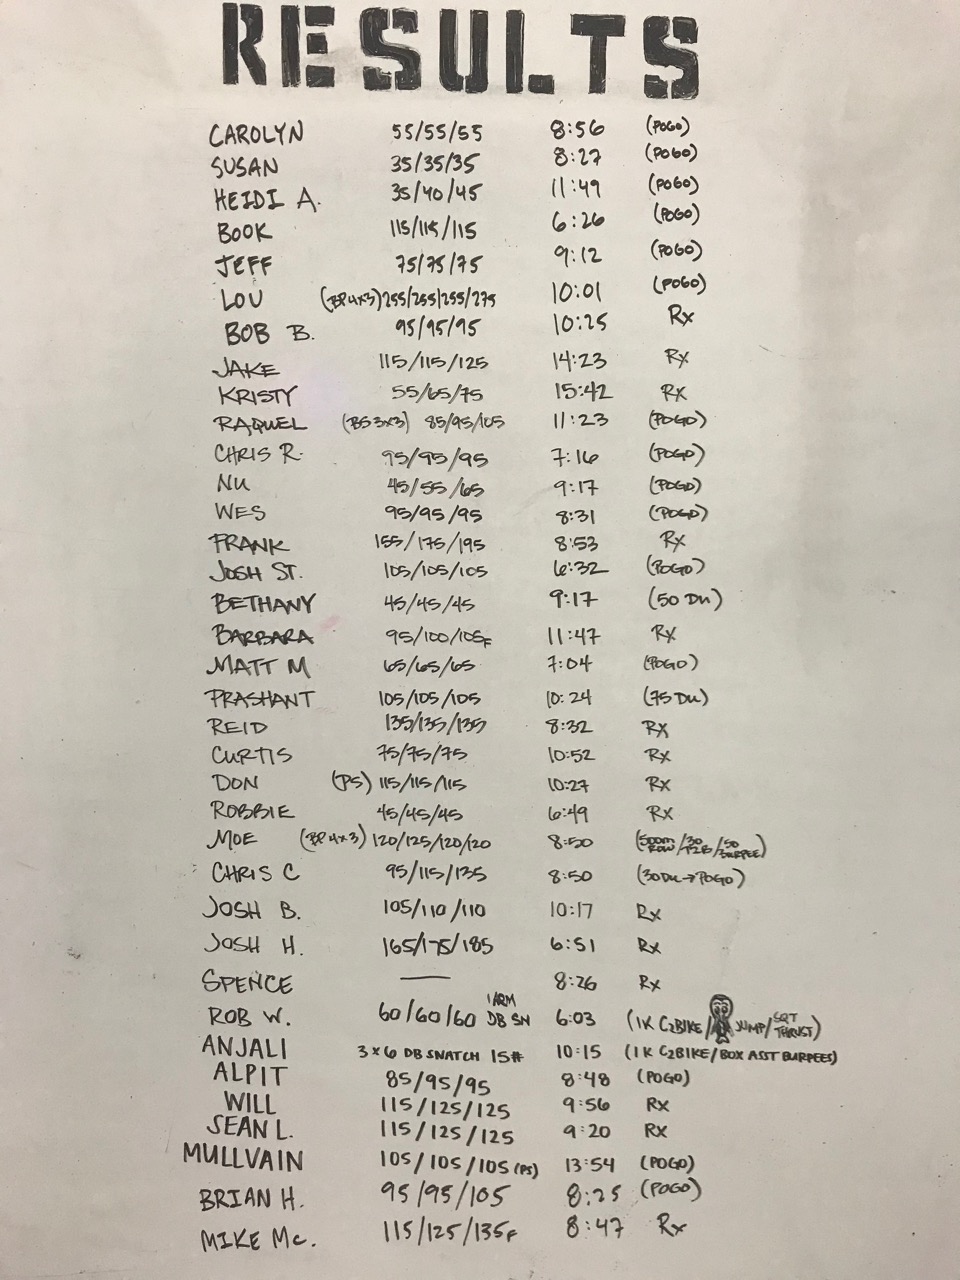 RESULTS
CAROLYN 55/55/55 8:56 (POGO)
SUSAN 35/35/35 8:27 (POGO)
HEIDI A. 35/40/45 11:49 (POGO)
BOOK 115/115/115 6:26 (POGO)
JEFF 75/75/75 9:12 (POGO)
LOU (BP 4x3) 255/255/255/275 10:01 (POGO)
BOB B. 95/95/95 10:25 Rx
JAKE 115/115/125 14:23 Rx
KRISTY 55/65/75 15:42 Rx
RAQUEL (BS 3x3) 85/95/105 11:23 (POGO)
CHRIS R. 95/95/95 7:16 (POGO)
NU 45/55/65 9:17 (POGO)
WES 95/95/95 8:31 (POGO)
FRANK 155/175/195 8:53 Rx
JOSH ST. 105/105/105 6:32 (POGO)
BETHANY 45/45/45 9:17 (50 DU)
BARBARA 95/100/105F 11:47 Rx
MATT M 65/65/65 7:04 (POGO)
PRASHANT 105/105/105 10:24 (75 DU)
REID 135/135/135 8:32 Rx
CURTIS 75/75/75 10:52 Rx
DON (PS) 115/115/115 10:27 Rx
ROBBIE 45/45/45 6:49 Rx
MOE (BP 4x3) 120/125/120/120 8:50 (500m ROW/30 T2B/50 BURPEE)
CHRIS C 95/115/135 8:50 (30 DU→POGO)
JOSH B. 105/110/110 10:17 Rx
JOSH H. 165/175/185 6:51 Rx
SPENCE — 8:26 Rx
ROB W. 60/60/60 1 ARM DB SN 6:03 (1K C2BIKE/ JUMP/SQT THRUST)
ANJALI 3x6 DB SNATCH 15# 10:15 (1K C2BIKE/BOX ASST BURPEES)
ALPIT 85/95/95 8:48 (POGO)
WILL 115/125/125 9:56 Rx
SEAN L. 115/125/125 9:20 Rx
MULLVAIN 105/105/105 (PS) 13:54 (POGO)
BRIAN H. 95/95/105 8:25 (POGO)
MIKE Mc. 115/125/135F 8:47 Rx